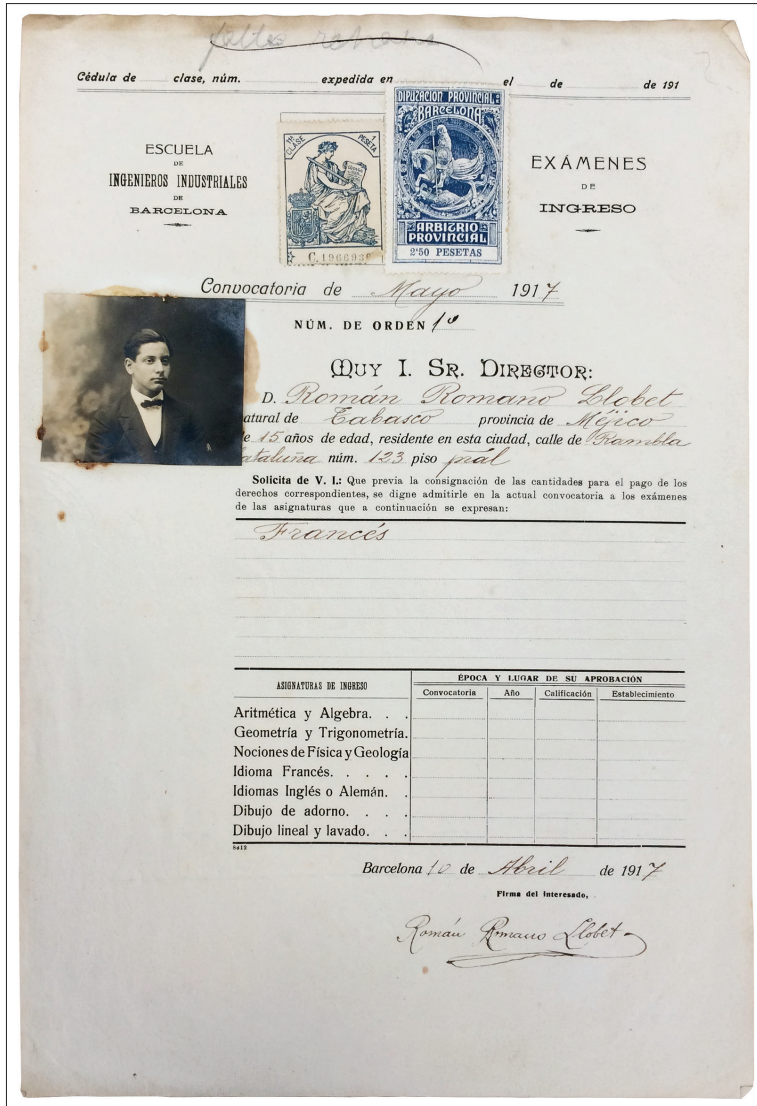 falta retrato
Cédula de clase, núm. expedida en el de de 191
ESCUELA
DE
INGENIEROS INDUSTRIALES
DE
BARCELONA
1 PESETA
CLASE
C.1966939
DIPUTACION PROVINCIAL:
BARCELONA
ARBITRIO
PROVINCIAL
2'50 PESETAS
EXÁMENES
DE
INGRESO
Convocatoria de Mayo 1917
NÚM. DE ORDEN
MUY I. SR. DIRECTOR:
D. Román Romano Llobet
atural de Tabasco provincia de Méjico
e 15 años de edad, residente en esta ciudad, calle de Rambla
ataluña núm. 123 piso pral
Solicita de V. I.: Que previa la consignación de las cantidades para el pago de los
derechos correspondientes, se digne admitirle en la actual convocatoria a los exámenes
de las asignaturas que a continuación se expresan:
Francés
ASIGNATURAS DE INGRESO
ÉPOCA Y LUGAR DE SU APROBACIÓN
Convocatoria Año Calificación Establecimiento
Aritmética y Algebra. . .
Geometría y Trigonometría.
Nociones de Física y Geología
Idioma Francés. . . . .
Idiomas Inglés o Alemán. .
Dibujo de adorno. . . .
Dibujo lineal y lavado. . .
8412
Barcelona 10 de Abril de 1917
Firma del interesado,
Román Romano Llobet